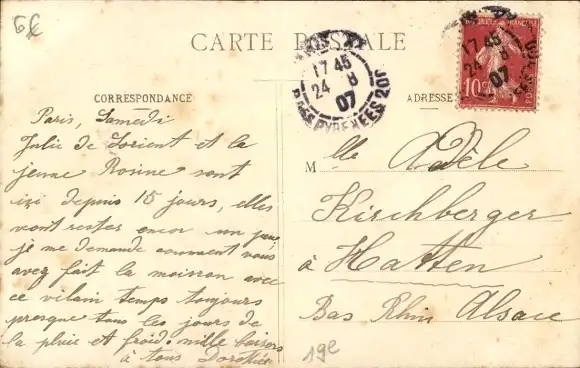 6€
CARTE POSTALE
17 45
24 8
07
PYRENEES
17 45
24 8
07
10
CORRESPONDANCE
ADRESSE
Paris, Samedi
Julie de Lorient et la
jeune Rosine sont
ici depuis 15 jours, elles
vont rester encor un peu,
je me demande comment vous
aveg fait la moisson avec
ce vilain temps toujours
presque tous les jours de
la pluie et froid. mille baisers
à tous Dorothée
Mlle Adèle
Kirchberger
à Hatten
Bas Rhin Alsace
19e